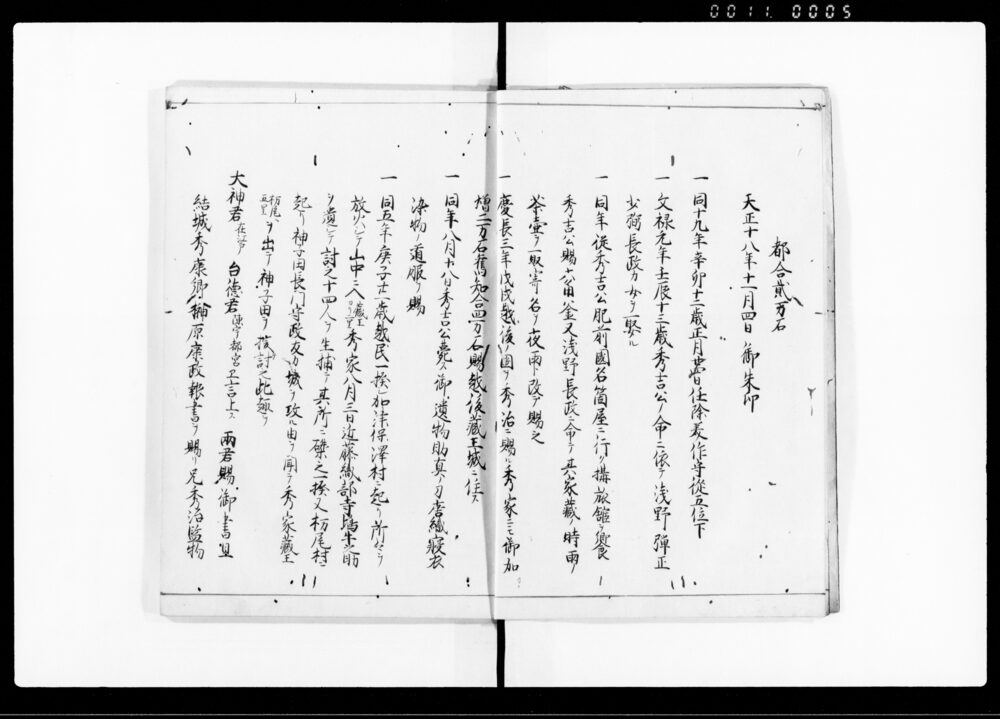 0011 0005
都合貳万石
天正十八年十一月四日 御朱印
一 同十九年辛卯十二歳正月 任除美作守從五位下
一 文禄元年壬辰十三歳秀吉公ノ命ニ依テ浅野弾正
少弼長政カ女ヲ娶ル
一 同年從秀吉公肥前國名箇屋ニ行ク搆旅舘ヲ饗
秀吉公賜 釜又浅野長政ニ命テ其家藏ノ時雨ノ
茶壷ヲ取寄名ヲ夜雨改テ賜之
一 慶長三年戊戌越後ノ國ヲ秀治ニ賜ル秀家ニモ御加
増二万石舊知合四万石賜越後藏王城ニ住ス
一 同年八月十八日秀吉公薨ス御遺物助真ノ刀唐織寢衣
染物ノ道服ヲ賜
一 同五年庚子廿一歳越民一揆加津保澤村ニ起リ所々ヲ
放火シテ山中ニ入 秀家八月三日近藤織部寺嶋半之助
ヲ遣シテ討之十四人ヲ生捕テ其所ニ磔之一揆又栃尾村ニ
起リ神子田長門守政友カ城ヲ攻ル由ヲ聞テ秀家藏王
ヲ出テ神子田ヲ援討之此趣ヲ
大神君 台德君 言上ス 兩君賜御書且
結城秀康卿榊原康政報書ヲ賜リ兄秀治監物